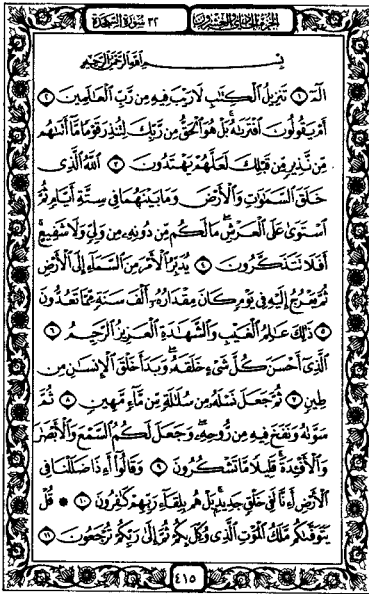 الجزء الحادي والعشرون ٣٢ سورة السجدة
بِسْمِ ٱللَّهِ ٱلرَّحْمَٰنِ ٱلرَّحِيمِ
الٓمٓ ١ تَنزِيلُ ٱلْكِتَٰبِ لَا رَيْبَ فِيهِ مِن رَّبِّ ٱلْعَٰلَمِينَ ٢
أَمْ يَقُولُونَ ٱفْتَرَىٰهُ ۚ بَلْ هُوَ ٱلْحَقُّ مِن رَّبِّكَ لِتُنذِرَ قَوْمًا مَّآ أَتَىٰهُم
مِّن نَّذِيرٍ مِّن قَبْلِكَ لَعَلَّهُمْ يَهْتَدُونَ ٣ ٱللَّهُ ٱلَّذِى
خَلَقَ ٱلسَّمَٰوَٰتِ وَٱلْأَرْضَ وَمَا بَيْنَهُمَا فِى سِتَّةِ أَيَّامٍ ثُمَّ
ٱسْتَوَىٰ عَلَى ٱلْعَرْشِ ۖ مَا لَكُم مِّن دُونِهِۦ مِن وَلِىٍّ وَلَا شَفِيعٍ ۚ
أَفَلَا تَتَذَكَّرُونَ ٤ يُدَبِّرُ ٱلْأَمْرَ مِنَ ٱلسَّمَآءِ إِلَى ٱلْأَرْضِ
ثُمَّ يَعْرُجُ إِلَيْهِ فِى يَوْمٍ كَانَ مِقْدَارُهُۥٓ أَلْفَ سَنَةٍ مِّمَّا تَعُدُّونَ
٥ ذَٰلِكَ عَٰلِمُ ٱلْغَيْبِ وَٱلشَّهَٰدَةِ ٱلْعَزِيزُ ٱلرَّحِيمُ ٦
ٱلَّذِىٓ أَحْسَنَ كُلَّ شَىْءٍ خَلَقَهُۥ ۖ وَبَدَأَ خَلْقَ ٱلْإِنسَٰنِ مِن
طِينٍ ٧ ثُمَّ جَعَلَ نَسْلَهُۥ مِن سُلَٰلَةٍ مِّن مَّآءٍ مَّهِينٍ ٨ ثُمَّ
سَوَّىٰهُ وَنَفَخَ فِيهِ مِن رُّوحِهِۦ ۖ وَجَعَلَ لَكُمُ ٱلسَّمْعَ وَٱلْأَبْصَٰرَ
وَٱلْأَفْـِٔدَةَ ۚ قَلِيلًا مَّا تَشْكُرُونَ ٩ وَقَالُوٓا۟ أَءِذَا ضَلَلْنَا فِى
ٱلْأَرْضِ أَءِنَّا لَفِى خَلْقٍ جَدِيدٍۭ ۚ بَلْ هُم بِلِقَآءِ رَبِّهِمْ كَٰفِرُونَ ١٠ ۞ قُلْ
يَتَوَفَّىٰكُم مَّلَكُ ٱلْمَوْتِ ٱلَّذِى وُكِّلَ بِكُمْ ثُمَّ إِلَىٰ رَبِّكُمْ تُرْجَعُونَ ١١
٤١٥